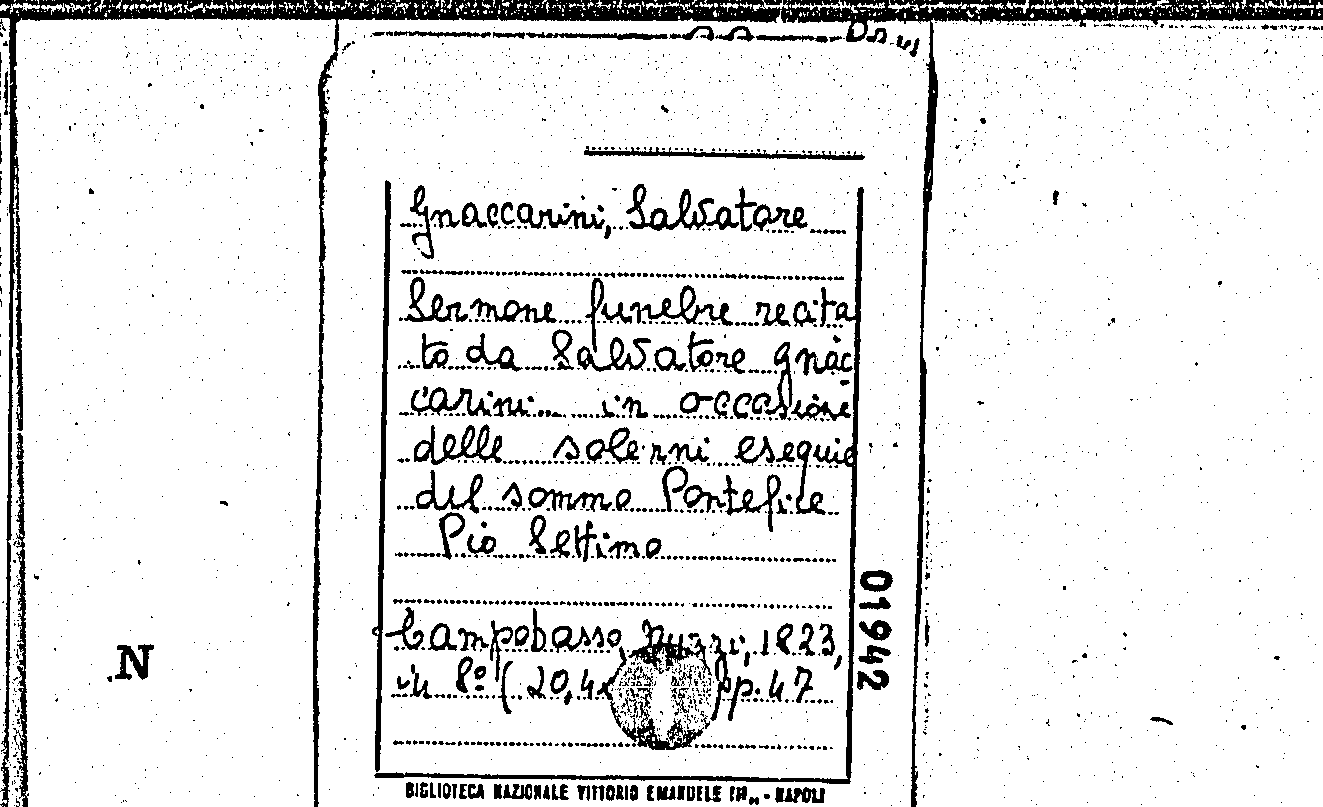 Gnaccarini, Salvatore
Sermone funebre recita
to da Salvatore Gnac
carini... in occasione
delle solenni esequie
del sommo Pontefice
Pio Settimo
Campobasso, Nuzzi, 1823,
in 8º ( 20,4x pp. 47
01942
N
BIBLIOTECA NAZIONALE VITTORIO EMANUELE III„ - NAPOLI